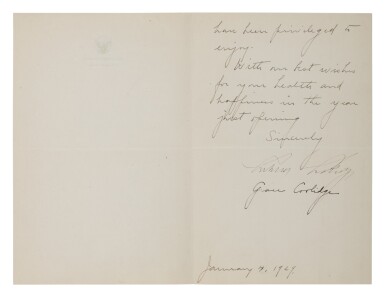 have been privileged to
enjoy.
With our best wishes
for your health and
happiness in the year
just opening
Sincerely
Calvin Coolidge
Grace Coolidge
January 4, 1929